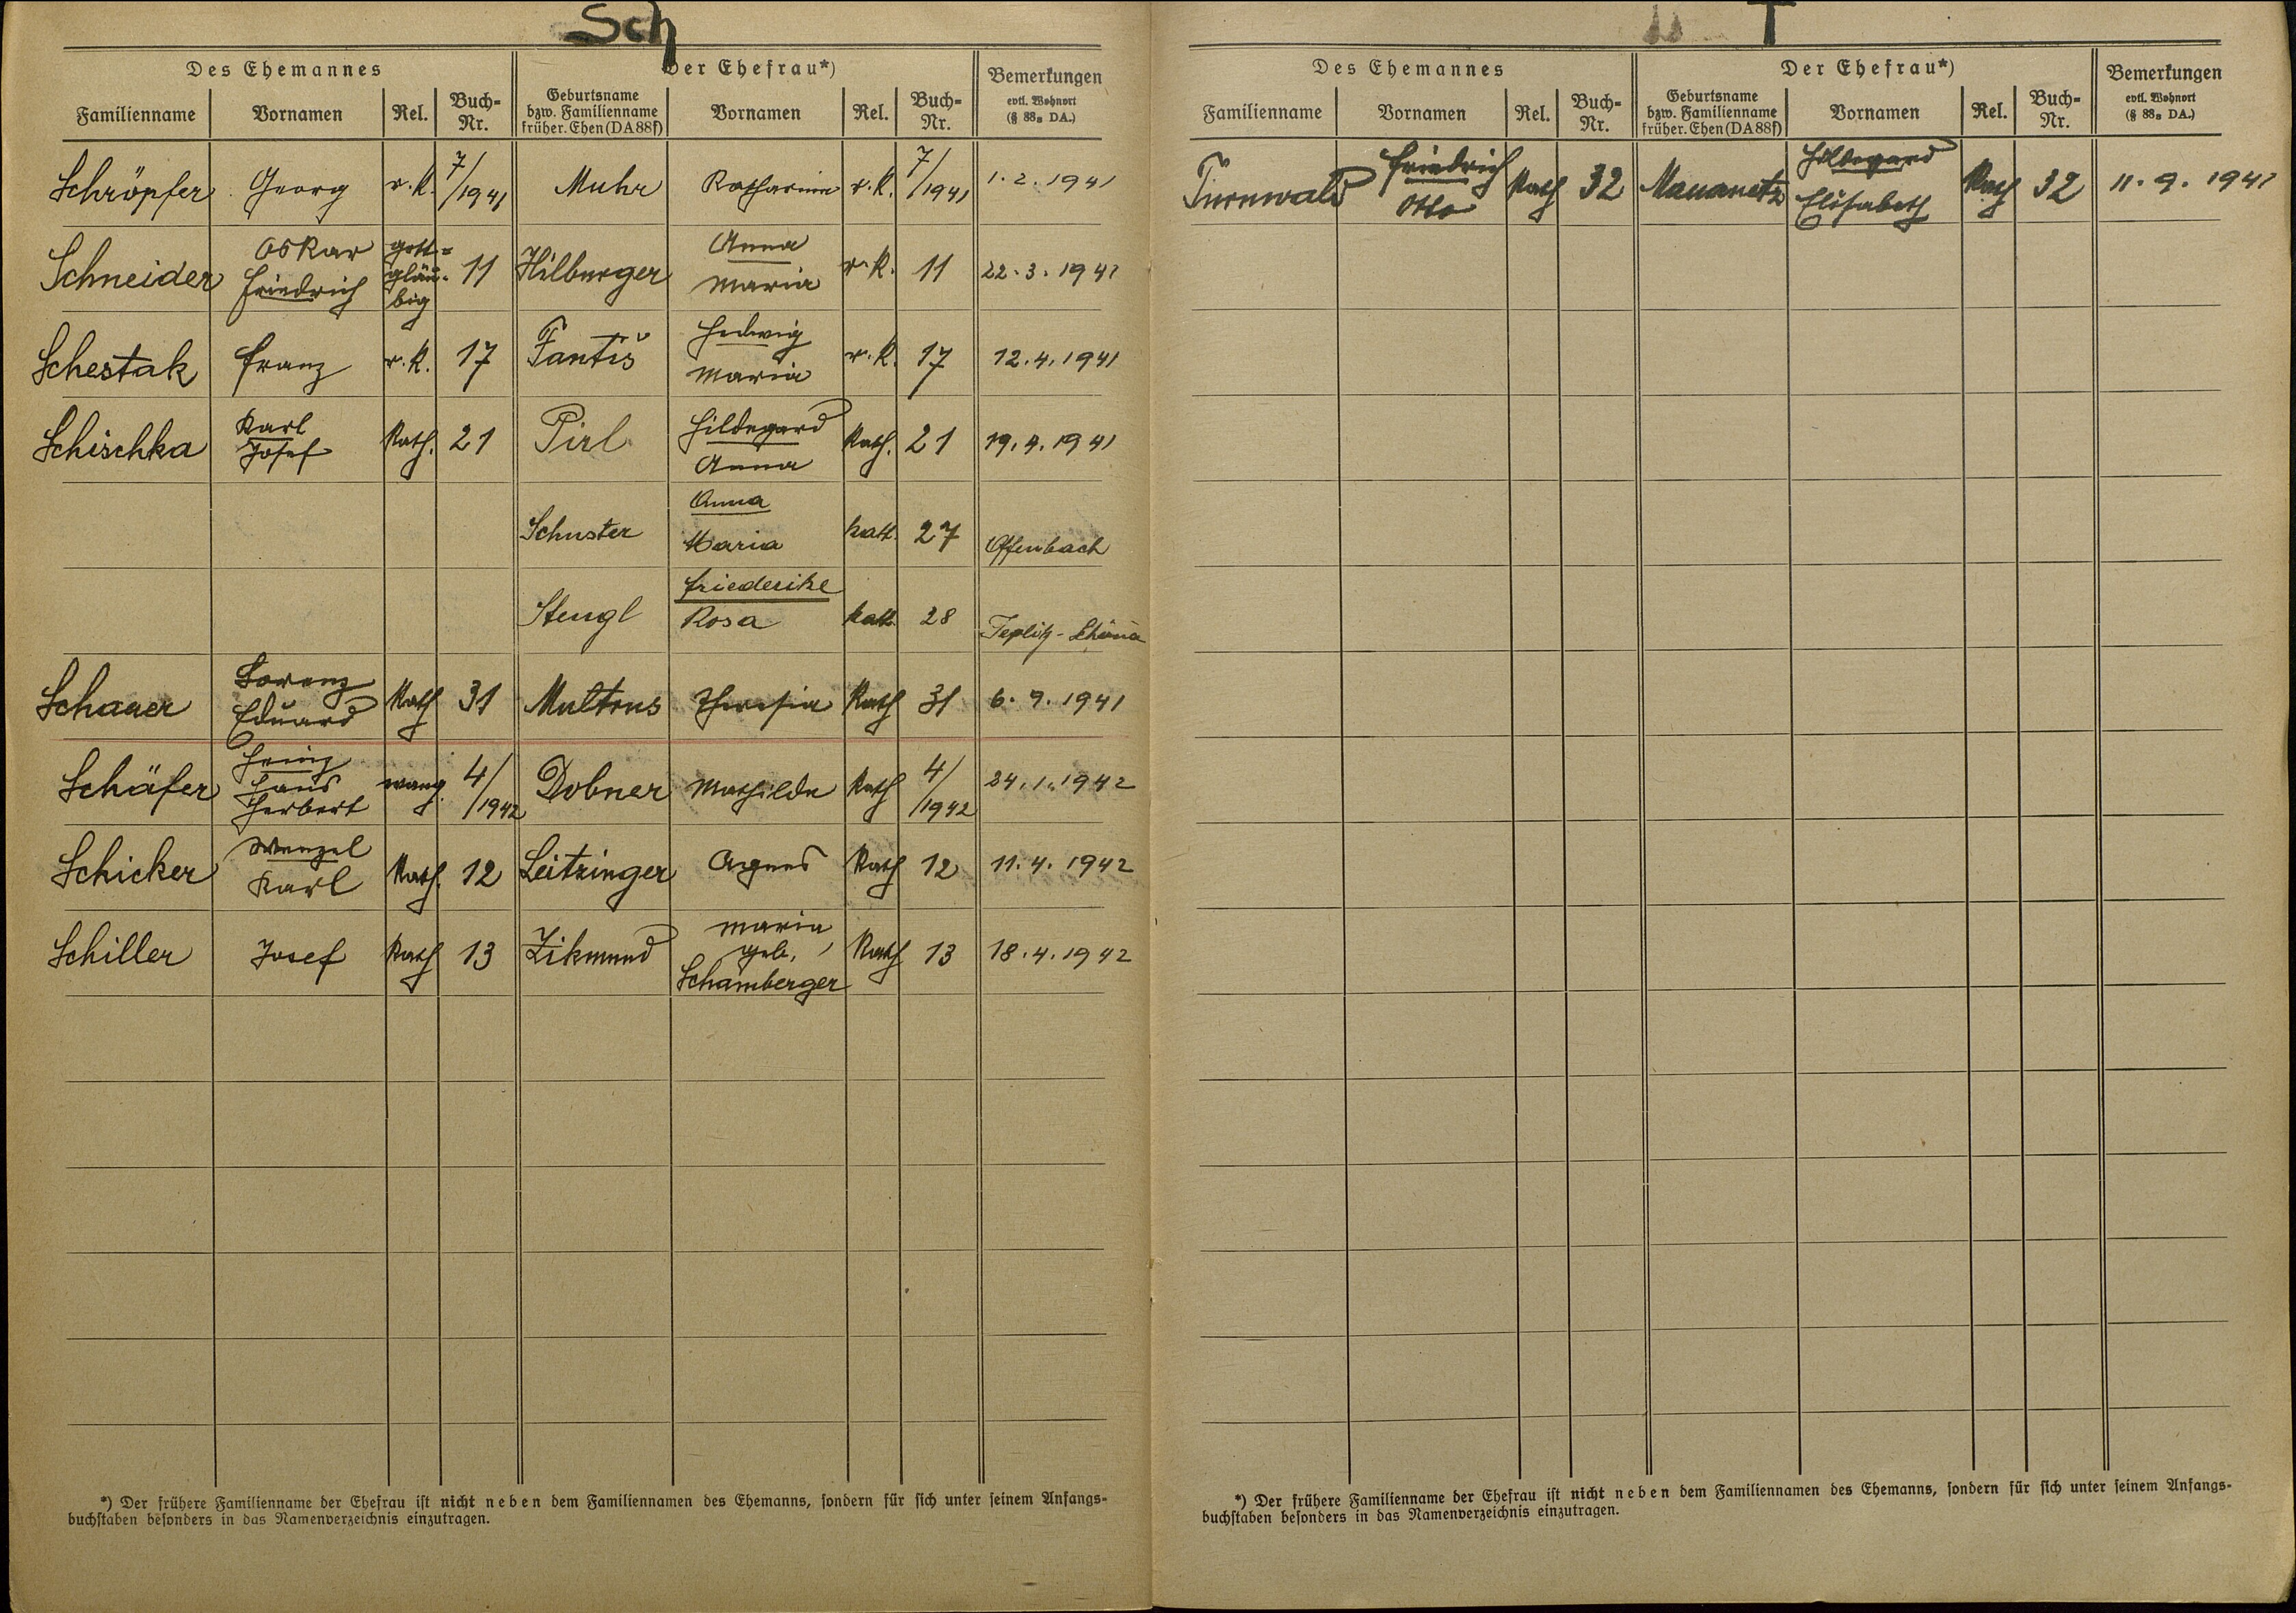 Sch
Des Ehemannes Der Ehefrau*) Bemerkungen evtl. Wohnort (§ 88a DA.)
Familienname Vornamen Rel. Buch-Nr. Geburtsname bzw. Familienname früher. Ehen (DA 88f) Vornamen Rel. Buch-Nr.
Schröpfer Georg r.k. 7/1941 Muhr Katharina r.k. 7/1941 1.2.1941
Schneider Oskar Friedrich gott-gläu-big 11 Hilburger Anna Maria r.k. 11 22.3.1941
Schestak Franz r.k. 17 Fantiš Hedwig Maria r.k. 17 12.4.1941
Schischka Karl Josef Kath. 21 Pirl Hildegard Anna Kath. 21 19.4.1941
Schuster Anna Maria kath. 27 Offenbach
Stengl Friederike Rosa kath. 28 Teplitz-Schöna
Schauer Lorenz Eduard Kath 31 Multrus Theresia Kath 31 6.9.1941
Schäfer Heinz Hans Herbert evang. 4/1942 Dobner Mathilde Kath 4/1942 24.1.1942
Schicker Wenzel Karl Kath. 12 Leitzinger Agnes Kath 12 11.4.1942
Schiller Josef Kath 13 Zikmund Maria geb. Schamberger Kath 13 18.4.1942
*) Der frühere Familienname der Ehefrau ist nicht neben dem Familiennamen des Ehemanns, sondern für sich unter seinem Anfangs-
buchstaben besonders in das Namenverzeichnis einzutragen.
T
Des Ehemannes Der Ehefrau*) Bemerkungen evtl. Wohnort (§ 88a DA.)
Familienname Vornamen Rel. Buch-Nr. Geburtsname bzw. Familienname früher. Ehen (DA 88f) Vornamen Rel. Buch-Nr.
Turnwald Friedrich Otto Kath 32 Hildegard Elisabeth Kath 32 11.9.1941
*) Der frühere Familienname der Ehefrau ist nicht neben dem Familiennamen des Ehemanns, sondern für sich unter seinem Anfangs-
buchstaben besonders in das Namenverzeichnis einzutragen.